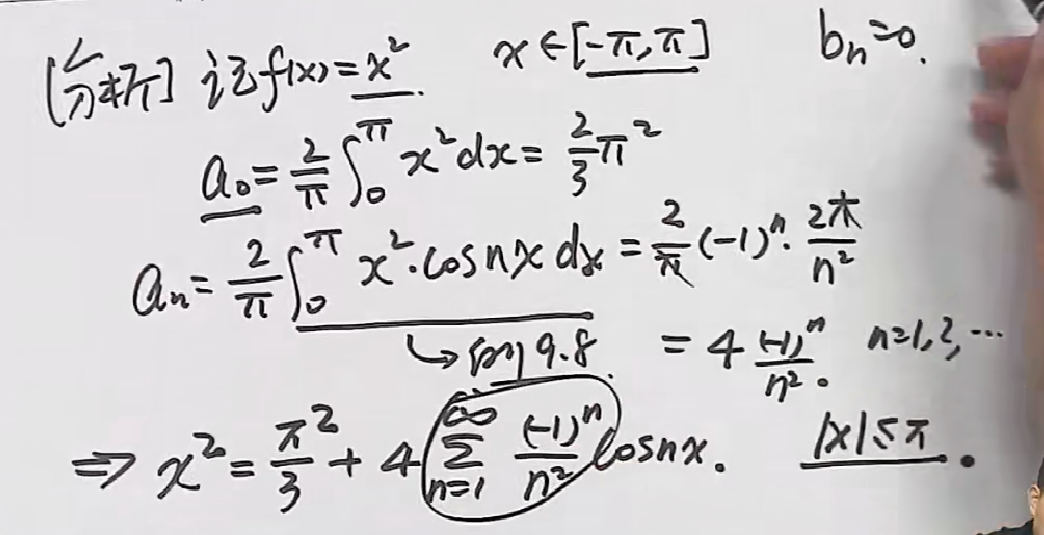 [分析] 记f(x)=x² x∈[-π,π] bₙ=0.
a₀=2/π ∫₀^π x²dx=2/3 π²
aₙ=2/π ∫₀^π x²·cosnx dx=2/π (-1)ⁿ·2π/n²
↳例9.8. =4 (-1)ⁿ/n². n=1,2,…
⇒ x²=π²/3+4 ∑_{n=1}^∞ (-1)ⁿ/n² cosnx. |x|≤π.